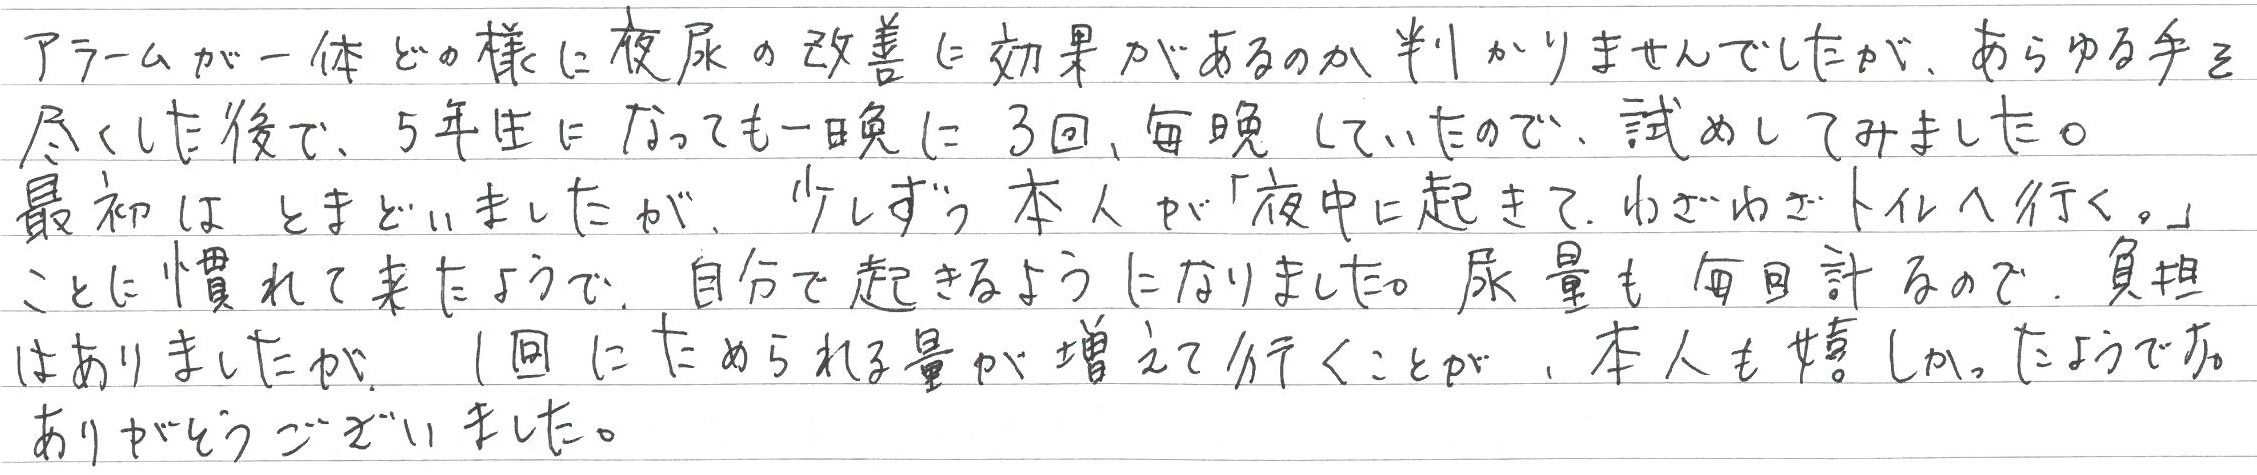 アラームが一体どの様に夜尿の改善に効果があるのか判かりませんでしたが、あらゆる手を
尽くした後で、5年生になっても一晩に3回、毎晩していたので、試めしてみました。
最初はとまどいましたが、少しずつ本人が「夜中に起きて、わざわざトイレへ行く。」
ことに慣れて来たようで、自分で起きるようになりました。尿量も毎回計るので、負担
はありましたが、1回にためられる量が増えて行くことが、本人も嬉しかったようです。
ありがとうございました。